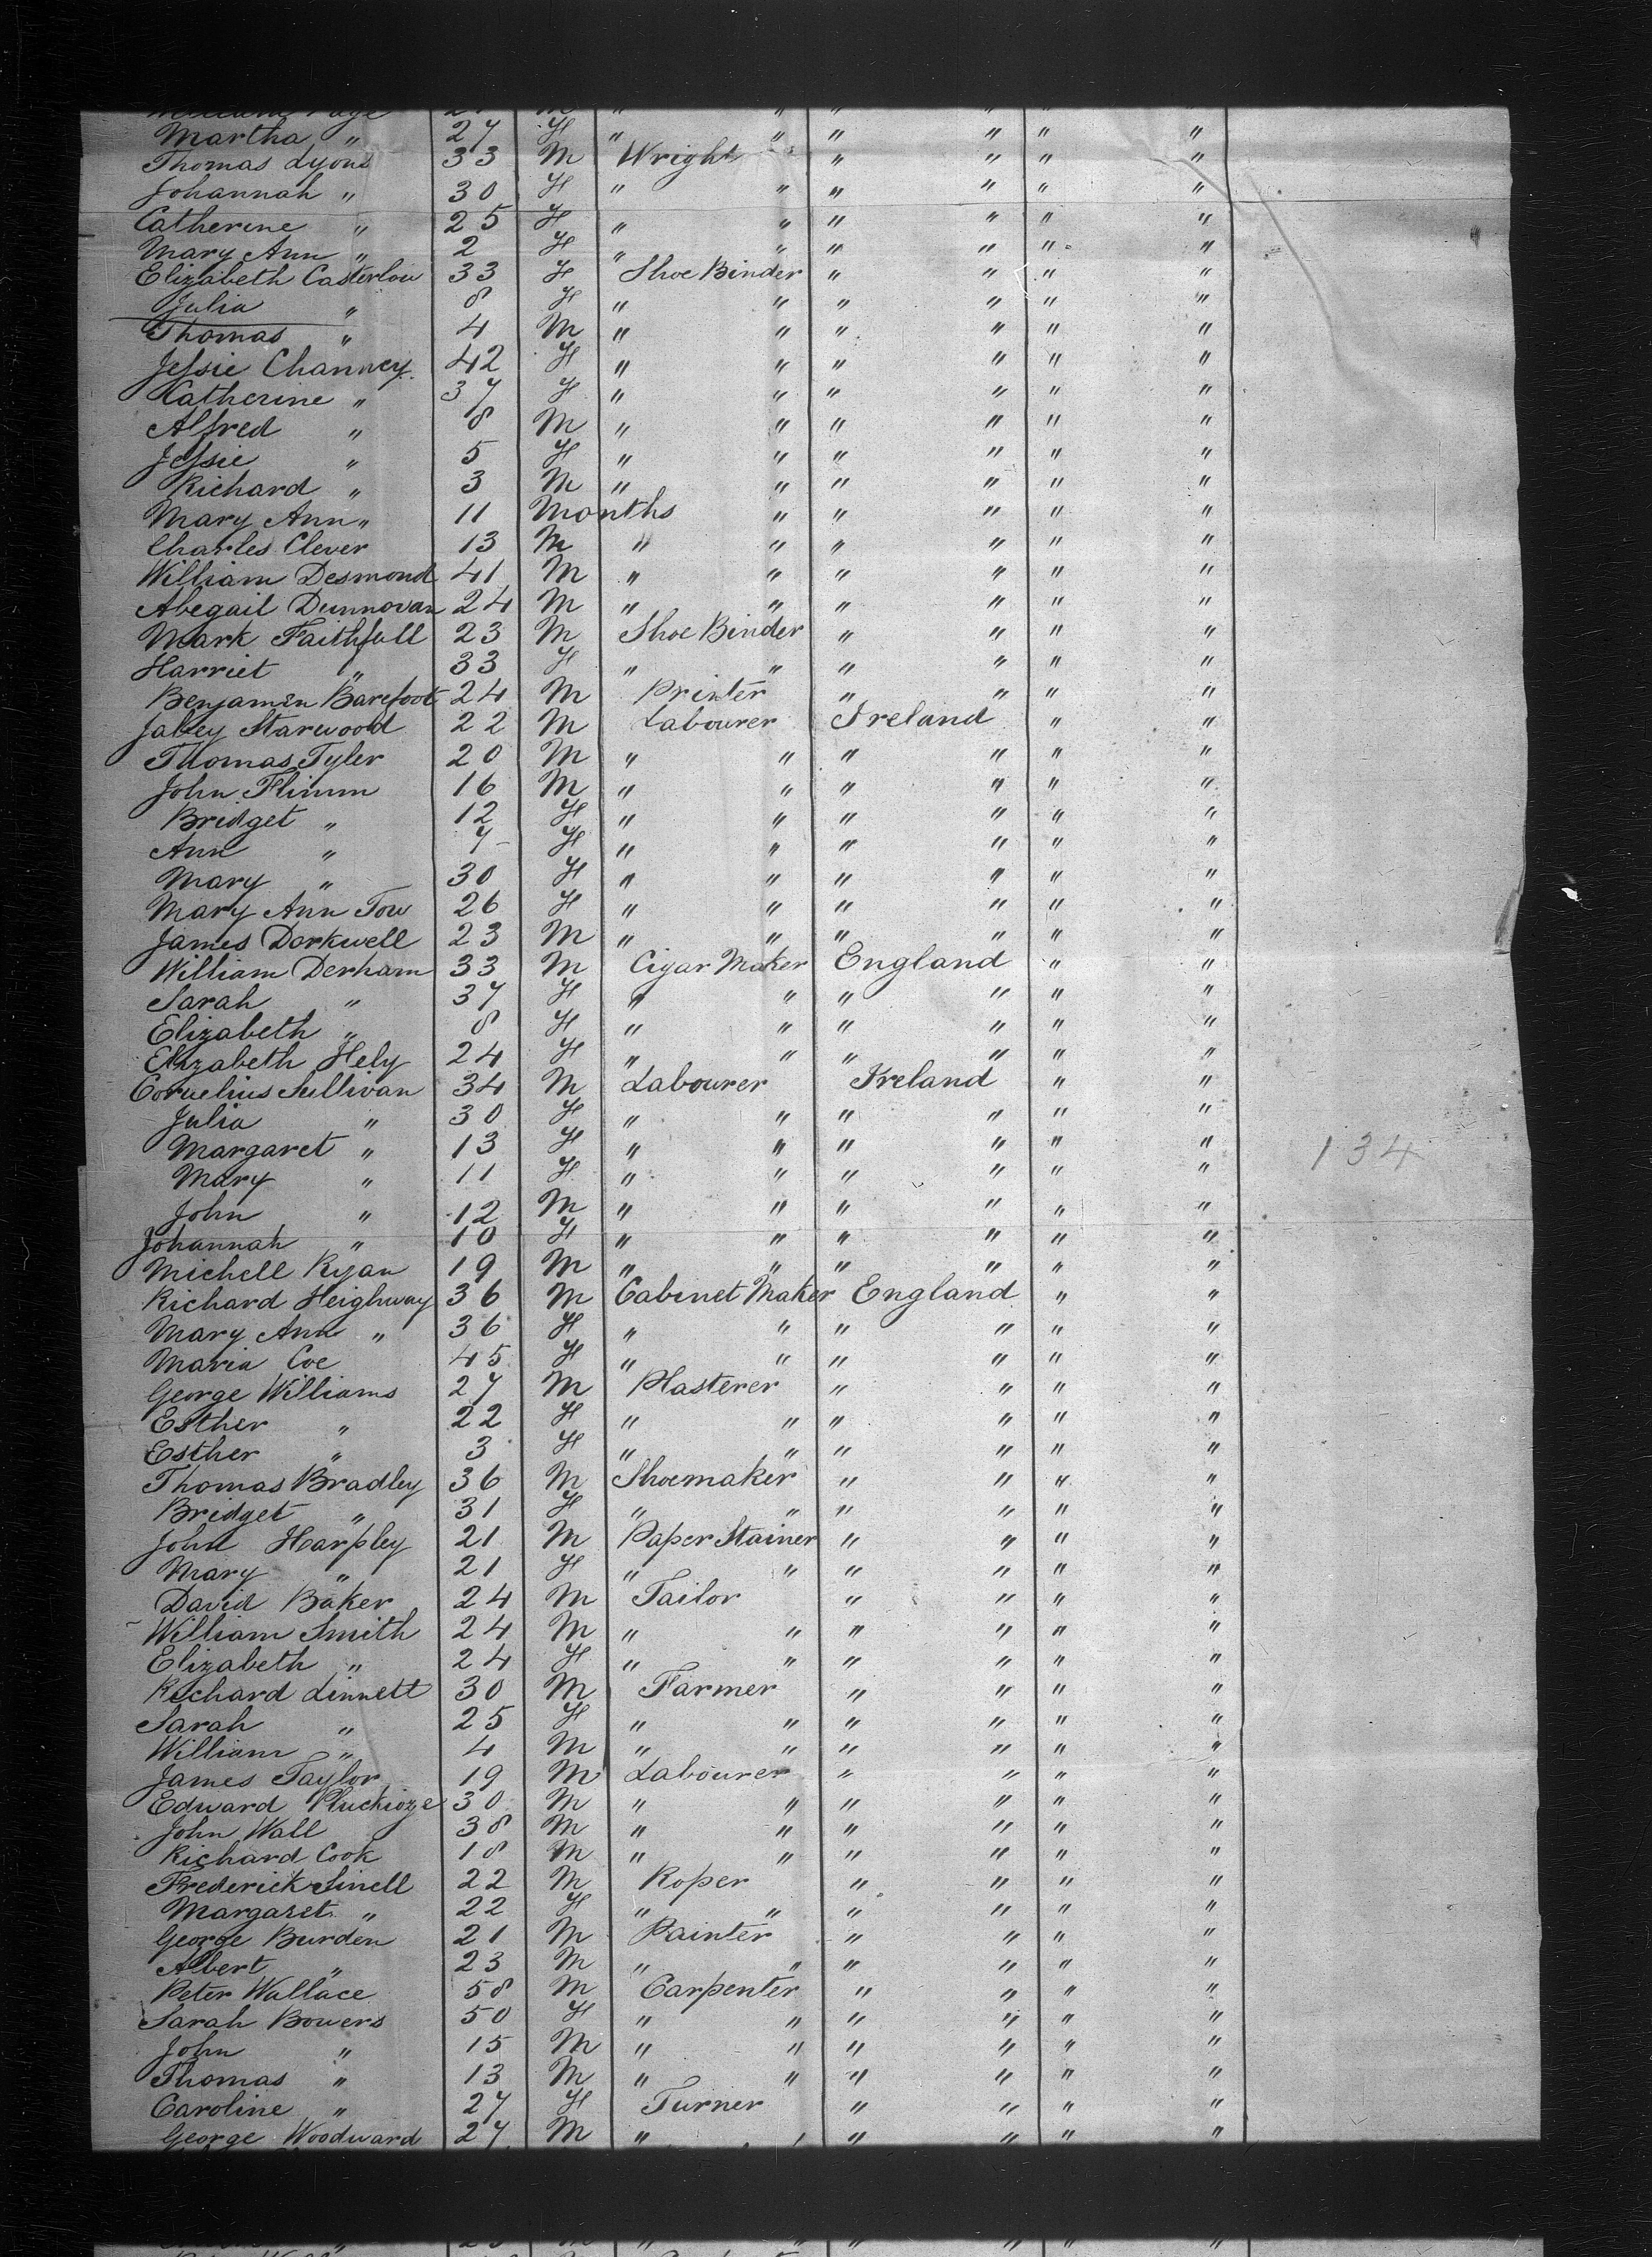 Martha " 27 F " " " " " "
Thomas Lyons 33 M Wright " " " "
Johannah " 30 F " " " " " "
Catherine " 25 F " " " " " "
Mary Ann " 2 F " " " " " "
Elizabeth Casterlow 33 F Shoe Binder " " " "
Julia " 8 F " " " " " "
Thomas " 4 M " " " " " "
Jessie Channey 42 F " " " " " "
Catherine " 37 F " " " " " "
Alfred " 8 M " " " " " "
Jessie " 5 F " " " " " "
Richard " 3 M " " " " " "
Mary Ann " 11 Months " " " " "
Charles Clever 13 M " " " " " "
William Desmond 41 M " " " " " "
Abegail Dunnovan 24 M " " " " " "
Mark Faithfull 23 M Shoe Binder " " " "
Harriet " 33 F " " " " " "
Benjamin Barefoot 24 M Printer " " " "
Jabey Starwood 22 M Labourer Ireland " "
Thomas Tyler 20 M " " " " " "
John Flinm 16 M " " " " " "
Bridget " 12 F " " " " " "
Ann " 7 F " " " " " "
Mary " 30 F " " " " " "
Mary Ann Tow 26 F " " " " " "
James Dorkwell 23 M " " " " " "
William Derham 33 M Cigar Maker England " "
Sarah " 37 F " " " " " "
Elizabeth " 8 F " " " " " "
Elizabeth Hely 24 F " " " " " "
Cornelius Sullivan 34 M Labourer Ireland " "
Julia " 30 F " " " " " "
Margaret " 13 F " " " " " " 134
Mary " 11 F " " " " " "
John " 12 M " " " " " "
Johannah " 10 F " " " " " "
Michell Ryan 19 M " " " " " "
Richard Heighway 36 M Cabinet Maker England " "
Mary Ann " 36 F " " " " " "
Maria Coe 45 F " " " " " "
George Williams 27 M Plasterer " " " "
Esther " 22 F " " " " " "
Esther " 3 F " " " " " "
Thomas Bradley 36 M Shoemaker " " " "
Bridget " 31 F " " " " " "
John Harpley 21 M Paper Stainer " " " "
Mary " 21 F " " " " " "
David Baker 24 M Tailor " " " "
William Smith 24 M " " " " " "
Elizabeth " 24 F " " " " " "
Richard Linnett 30 M Farmer " " " "
Sarah " 25 F " " " " " "
William " 4 M " " " " " "
James Taylor 19 M Labourer " " " "
Edward Pluckioze 30 M " " " " " "
John Wall 38 M " " " " " "
Richard Cook 18 M " " " " " "
Frederick Sinell 22 M Roper " " " "
Margaret " 22 F " " " " " "
George Burden 21 M Painter " " " "
Albert " 23 M " " " " " "
Peter Wallace 58 M Carpenter " " " "
Sarah Bowers 50 F " " " " " "
John " 15 M " " " " " "
Thomas " 13 M " " " " " "
Caroline " 27 F Turner " " " "
George Woodward 27 M " " " " "